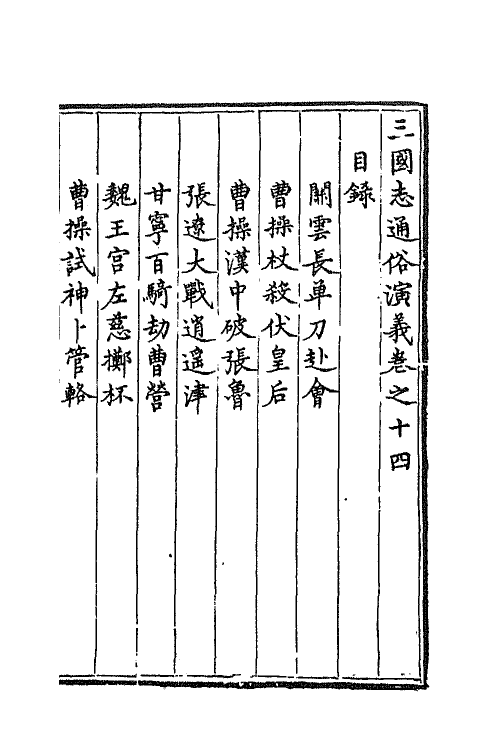 三國志通俗演義卷之十四
目錄
關雲長單刀赴會
曹操杖殺伏皇后
曹操漢中破張魯
張遼大戰逍遙津
甘寧百騎劫曹營
魏王宮左慈擲杯
曹操試神卜管輅